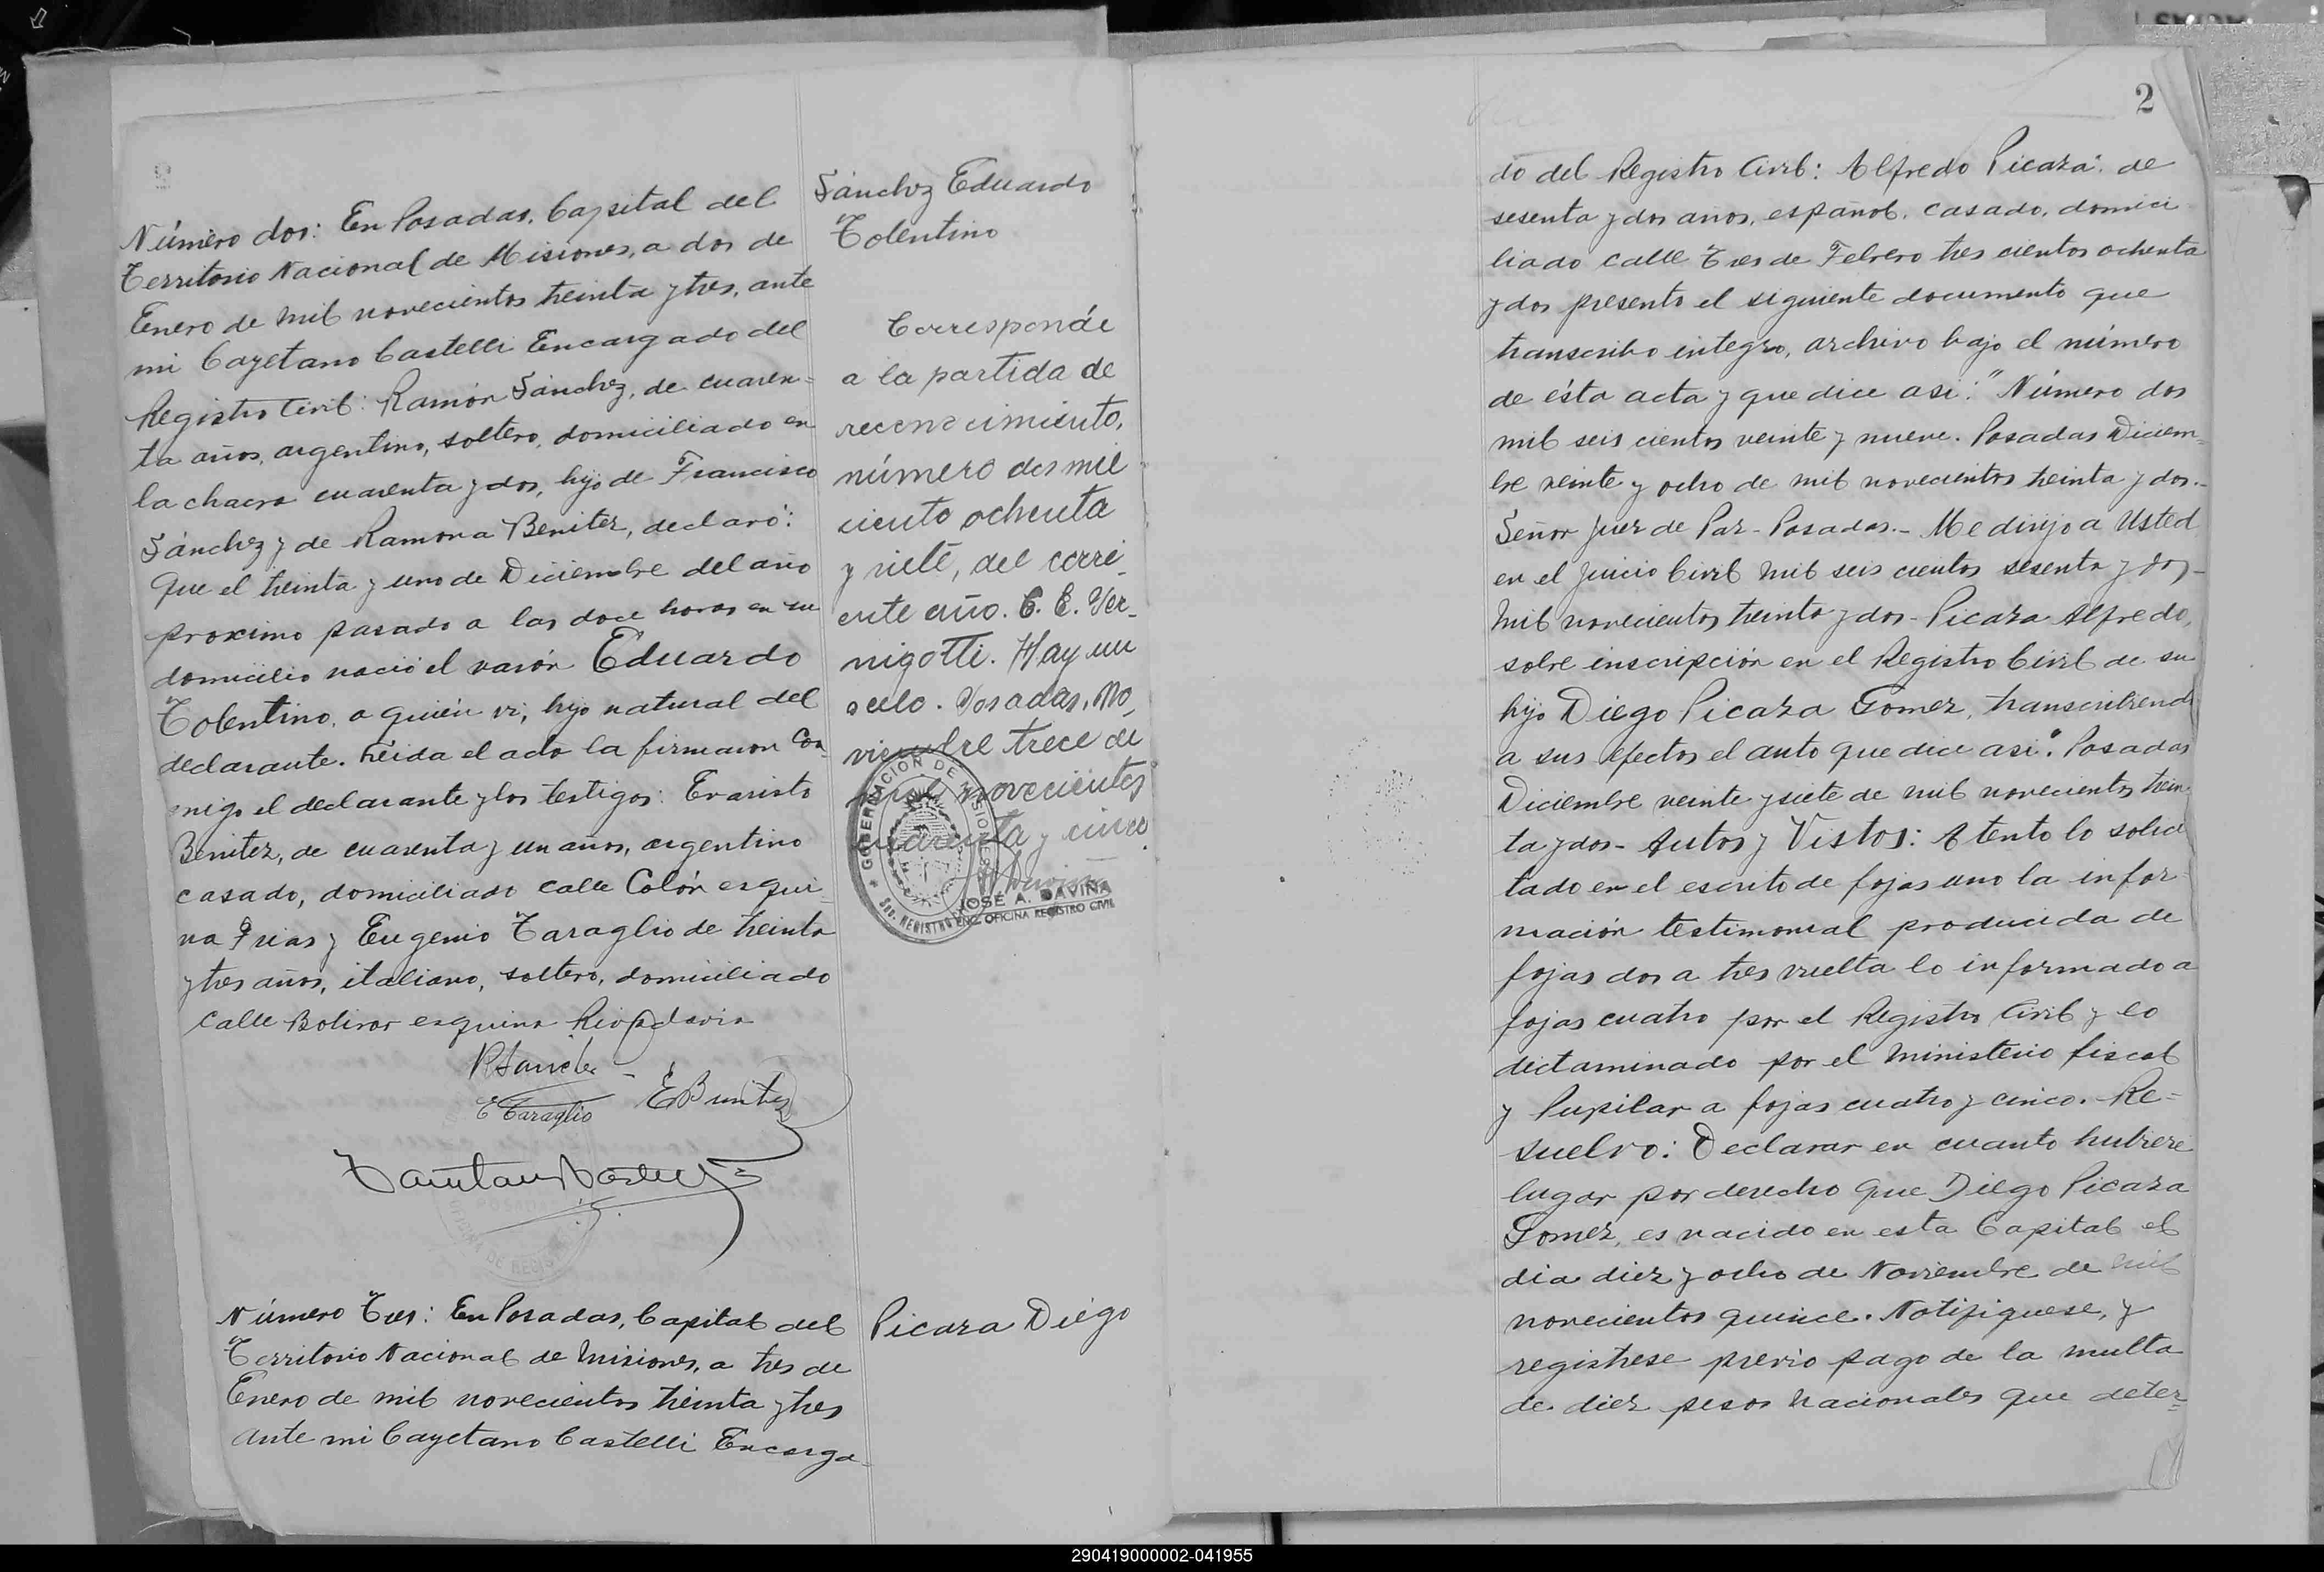 Número dos: En Posadas, Capital del
Territorio Nacional de Misiones, a dos de
Enero de mil novecientos treinta y tres, ante
mi Cayetano Castelli Encargado del
Registro Civil: Ramón Sánchez, de cuaren=
ta años, argentino, soltero, domiciliado en
la chacra cuarenta y dos, hijo de Francisco
Sánchez y de Ramona Benitez, declaró:
Que el treinta y uno de Diciembre del año
proximo pasado a las doce horas en su
domicilio nació el varón Eduardo
Tolentino, a quién vi, hijo natural del
declarante. Leida el acta la firmaron con
migo el declarante y los testigos: Evaristo
Benitez, de cuarenta y un años, argentino
casado, domiciliado calle Colón esqui-
na Frias y Eugenio Taraglio de treinta
y tres años, italiano, soltero, domiciliado
calle Bolivar esquina Rivadavia
E Taraglio
E Benitez
Sánchez Eduardo
Tolentino
Corresponde
a la partida de
reconocimiento,
número dos mil
ciento ochenta
y siete, del corri-
ente año. C. E. Ver-
nigotti. Hay un
sello. Posadas, No-
viembre trece de
mil novecientos
cuarenta y cinco.
GOBERNACION DE MISIONES
JOSÉ A. DAVIÑA
ENC. OFICINA REGISTRO CIVIL
Número Tres: En Posadas, Capital del
Territorio Nacional de Misiones, a tres de
Enero de mil novecientos treinta y tres
ante mi Cayetano Castelli Encarga-
Picaza Diego
2
do del Registro Civil: Alfredo Picaza, de
sesenta y dos años, español, casado, domici
liado calle Tres de Febrero tres cientos ochenta
y dos presento el siguiente documento que
transcribo integro, archivo bajo el número
de ésta acta y que dice asi: "Número dos
mil seis cientos veinte y nueve. Posadas Diciem-
bre veinte y ocho de mil novecientos treinta y dos.-
Señor Juez de Paz - Posadas.- Me dirijo a Usted
en el juicio Civil mil seis cientos sesenta y dos-
mil novecientos treinta y dos - Picaza Alfredo,
sobre inscripción en el Registro Civil de su
hijo Diego Picaza Gomez, transcribiendo
a sus efectos el auto que dice asi: "Posadas
Diciembre veinte y siete de mil novecientos trein
ta y dos - Autos y Vistos: Atento lo solici
tado en el escrito de fojas uno la infor-
mación testimonial producida de
fojas dos a tres vuelta lo informado a
fojas cuatro por el Registro Civil y lo
dictaminado por el Ministerio fiscal
y Pupilar a fojas cuatro y cinco. Re=
suelvo: Declarar en cuanto hubiere
lugar por derecho que Diego Picaza
Gomez, es nacido en esta Capital el
dia diez y ocho de Noviembre de mil
novecientos quince. Notifiquese, y
registrese previo pago de la multa
de diez pesos nacionales que deter=
290419000002-041955